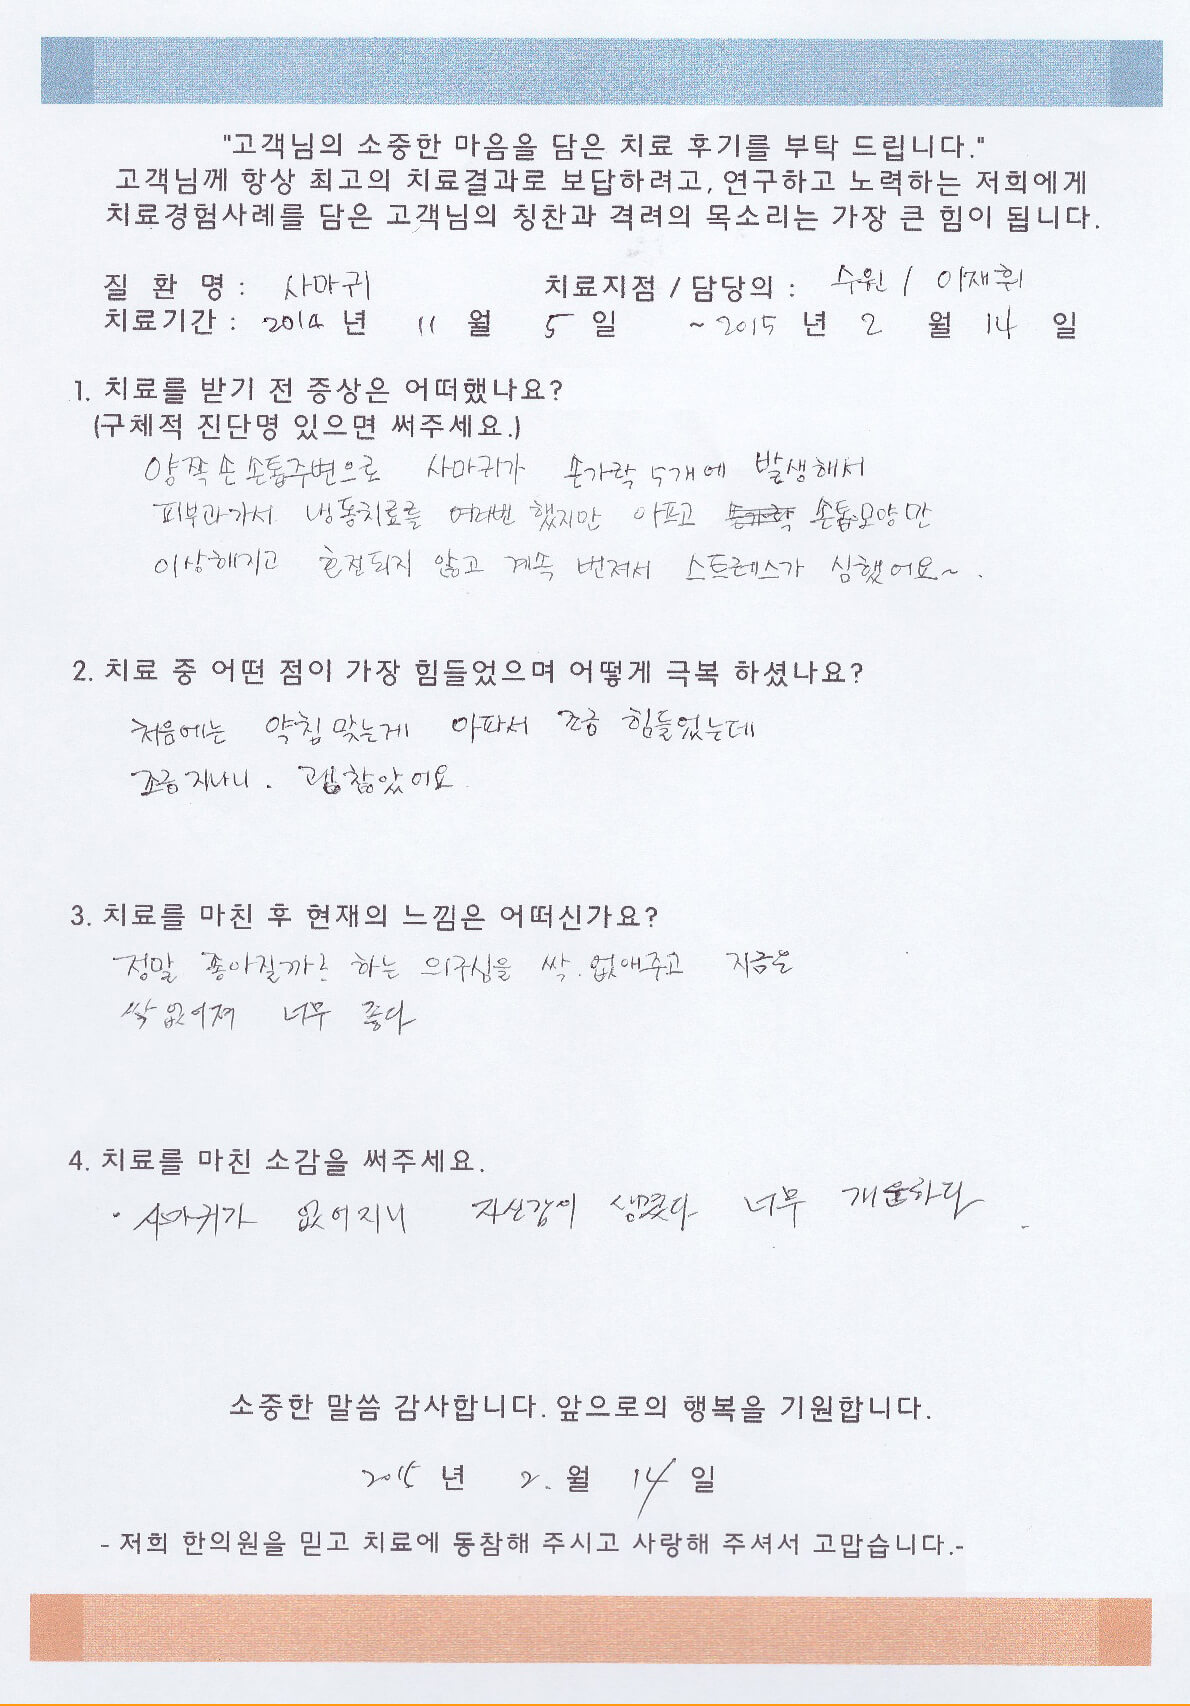 "고객님의 소중한 마음을 담은 치료 후기를 부탁 드립니다."
고객님께 항상 최고의 치료결과로 보답하려고, 연구하고 노력하는 저희에게
치료경험사례를 담은 고객님의 칭찬과 격려의 목소리는 가장 큰 힘이 됩니다.
질 환 명 : 사마귀 치료지점 / 담당의 : 수원 / 이재휘
치료기간 : 2014 년 11 월 5 일 ~ 2015 년 2 월 14 일
1. 치료를 받기 전 증상은 어떠했나요?
(구체적 진단명 있으면 써주세요.)
양쪽 손 손톱주변으로 사마귀가 손가락 5개에 발생해서
피부과가서 냉동치료를 여러번 했지만 아프고 손톱모양만
이상해지고 호전되지 않고 계속 번져서 스트레스가 심했어요~.
2. 치료 중 어떤 점이 가장 힘들었으며 어떻게 극복 하셨나요?
처음에는 약침 맞는게 아파서 조금 힘들었는데
조금 지나니. 괜찮았어요
3. 치료를 마친 후 현재의 느낌은 어떠신가요?
정말 좋아질까? 하는 의구심을 싹. 없애주고 지금은
싹 없어져 너무 좋다
4. 치료를 마친 소감을 써주세요.
· 사마귀가 없어지니 자신감이 생겼다 너무 개운하다
소중한 말씀 감사합니다. 앞으로의 행복을 기원합니다.
2015 년 2. 월 14 일
- 저희 한의원을 믿고 치료에 동참해 주시고 사랑해 주셔서 고맙습니다.-